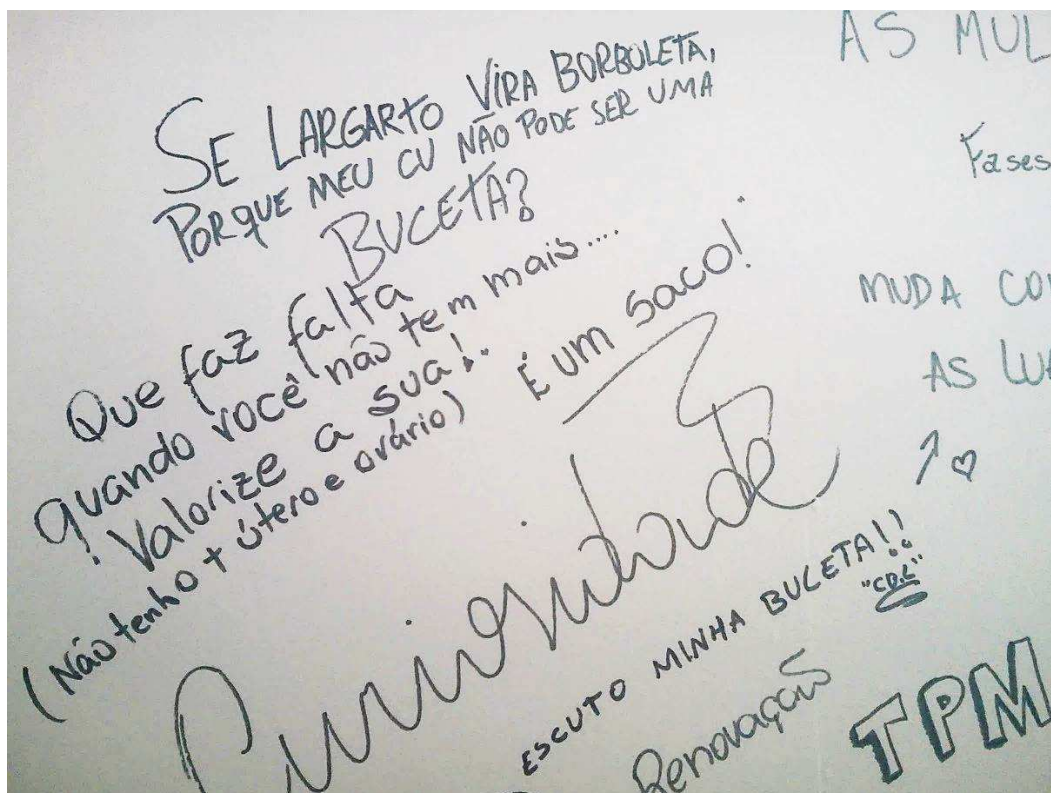 SE LARGARTO VIRA BORBOLETA,
PORQUE MEU CU NÃO PODE SER UMA
BUCETA?
Que faz falta
quando você não tem mais....
! Valorize a sua!
(Não tenho + útero e ovário)
É UM SACO!
Curiosidade
ESCUTO MINHA BUCETA!!
"CB.L"
Renovação
TPM
AS MUL
Fases
MUDA CO
AS LUA